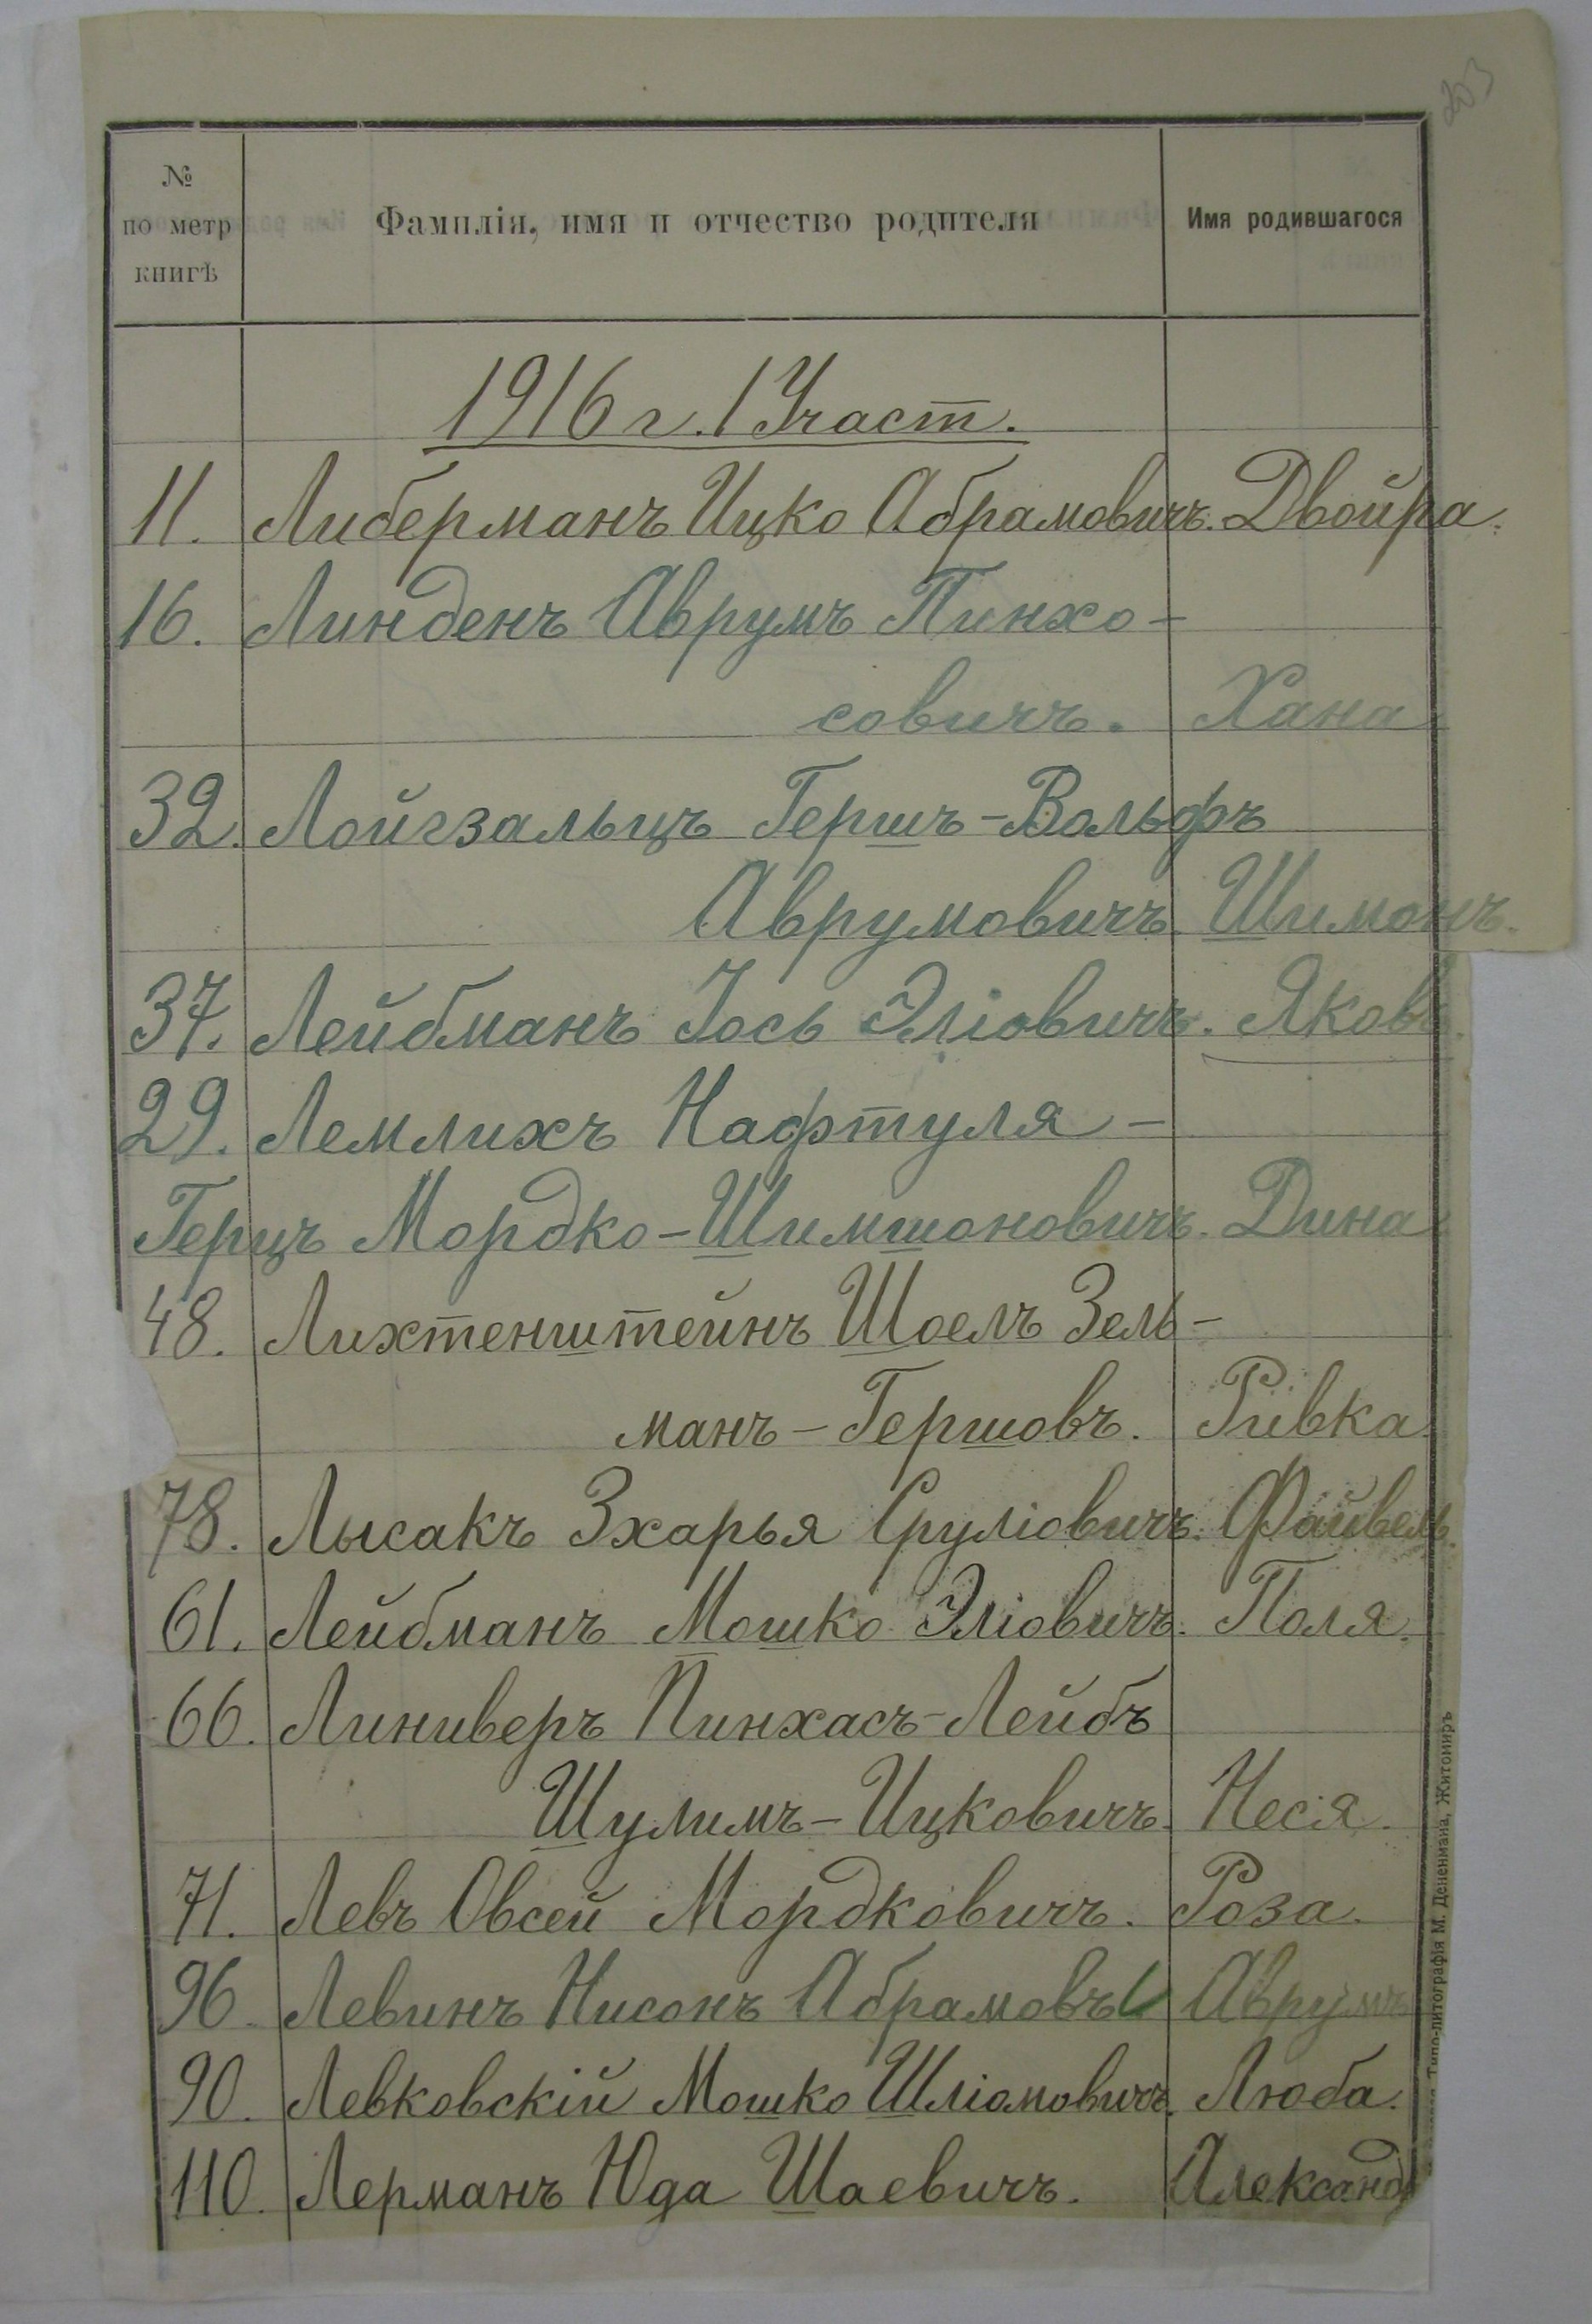 203
№
по метр
книгѣ
Фамилія, имя и отчество родителя
Имя родившагося
1916 г. 1 Участ.
11. Либерманъ Ицко Абрамовичъ. Двойра.
16. Линденъ Аврумъ Пинхо-
совичъ. Хана
32. Лойгзальцъ Гершъ-Вольфъ
Аврумовичъ. Шимонъ.
37. Лейбманъ Іось Эліовичъ. Яковъ.
29. Лемлихъ Нафтуля-
Герцъ Мордко-Шимшоновичъ. Дина
48. Лихтенштейнъ Шоелъ Зель-
манъ-Гершовъ. Ривка.
78. Лысакъ Зхарья Сруліовичъ. Файвель.
61. Лейбманъ Мошко Эліовичъ. Поля.
66. Линиверъ Пинхасъ-Лейбъ
Шулимъ-Ицковичъ. Неся.
71. Левъ Овсей Мордковичъ. Роза.
96. Левинъ Нисонъ Абрамовъ Аврумъ
90. Левковскій Мошко Шліомовичъ. Люба.
110. Лерманъ Юда Шаевичъ. Александ
Типо-литографія М. Дененмана, Житомиръ